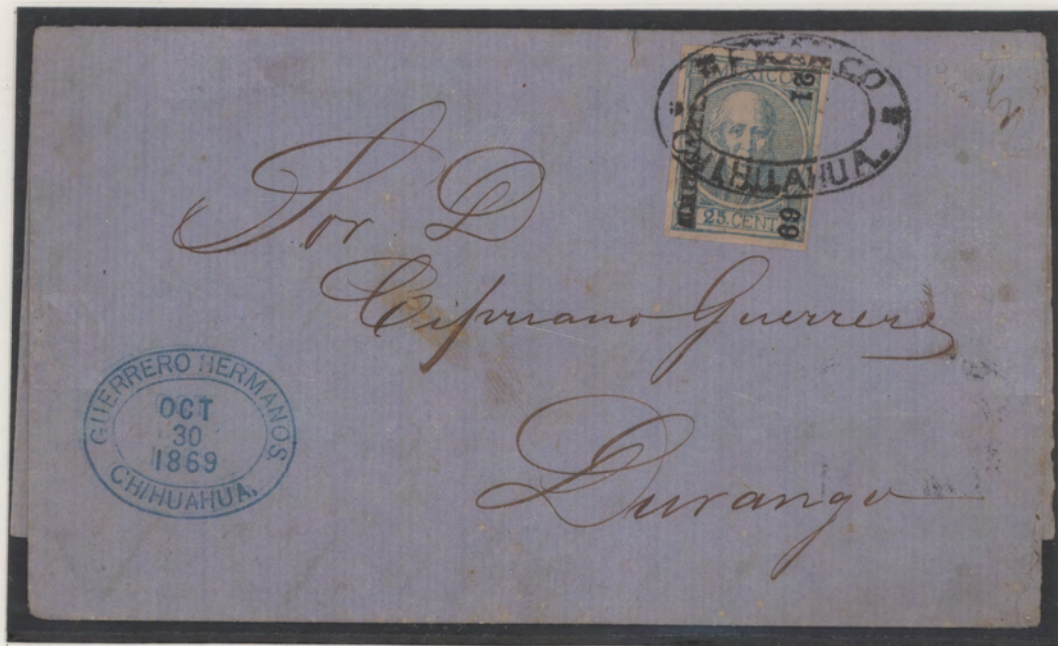 FRANCO
CHIHUAHUA.
MEXICO
CHIHUAHUA
21
69
25.CENT
Sor. D
Cipriano Guerrero
Durango
GUERRERO HERMANOS.
OCT
30
1869
CHIHUAHUA.